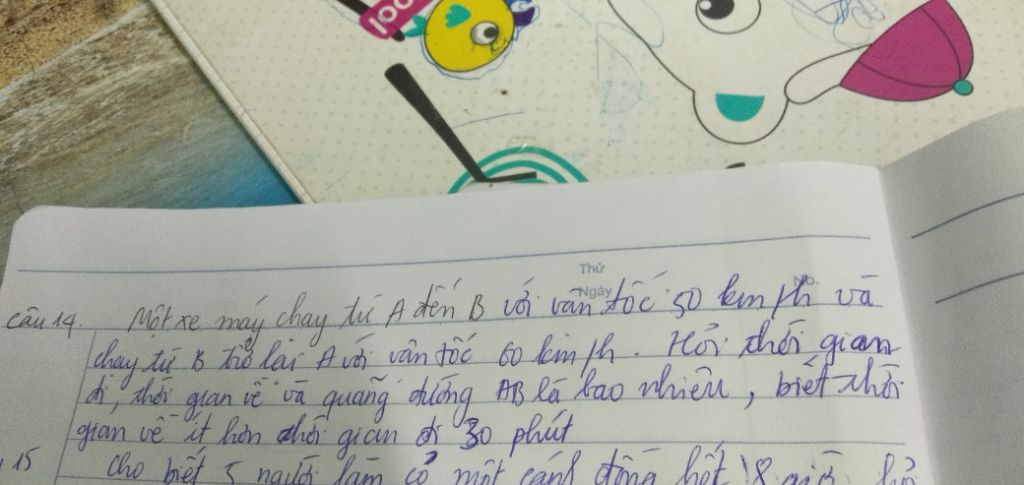 100
Thứ
Ngày
No.
Câu 14. Một xe máy chạy từ A đến B với vận tốc 50 km/h và
chạy từ B trở lại A với vận tốc 60 km/h. Hỏi thời gian
đi, thời gian về và quãng đường AB là bao nhiêu, biết thời
gian về ít hơn thời gian đi 30 phút
15 Cho biết 5 người làm cỏ một cánh đồng hết 8 giờ. hỏi